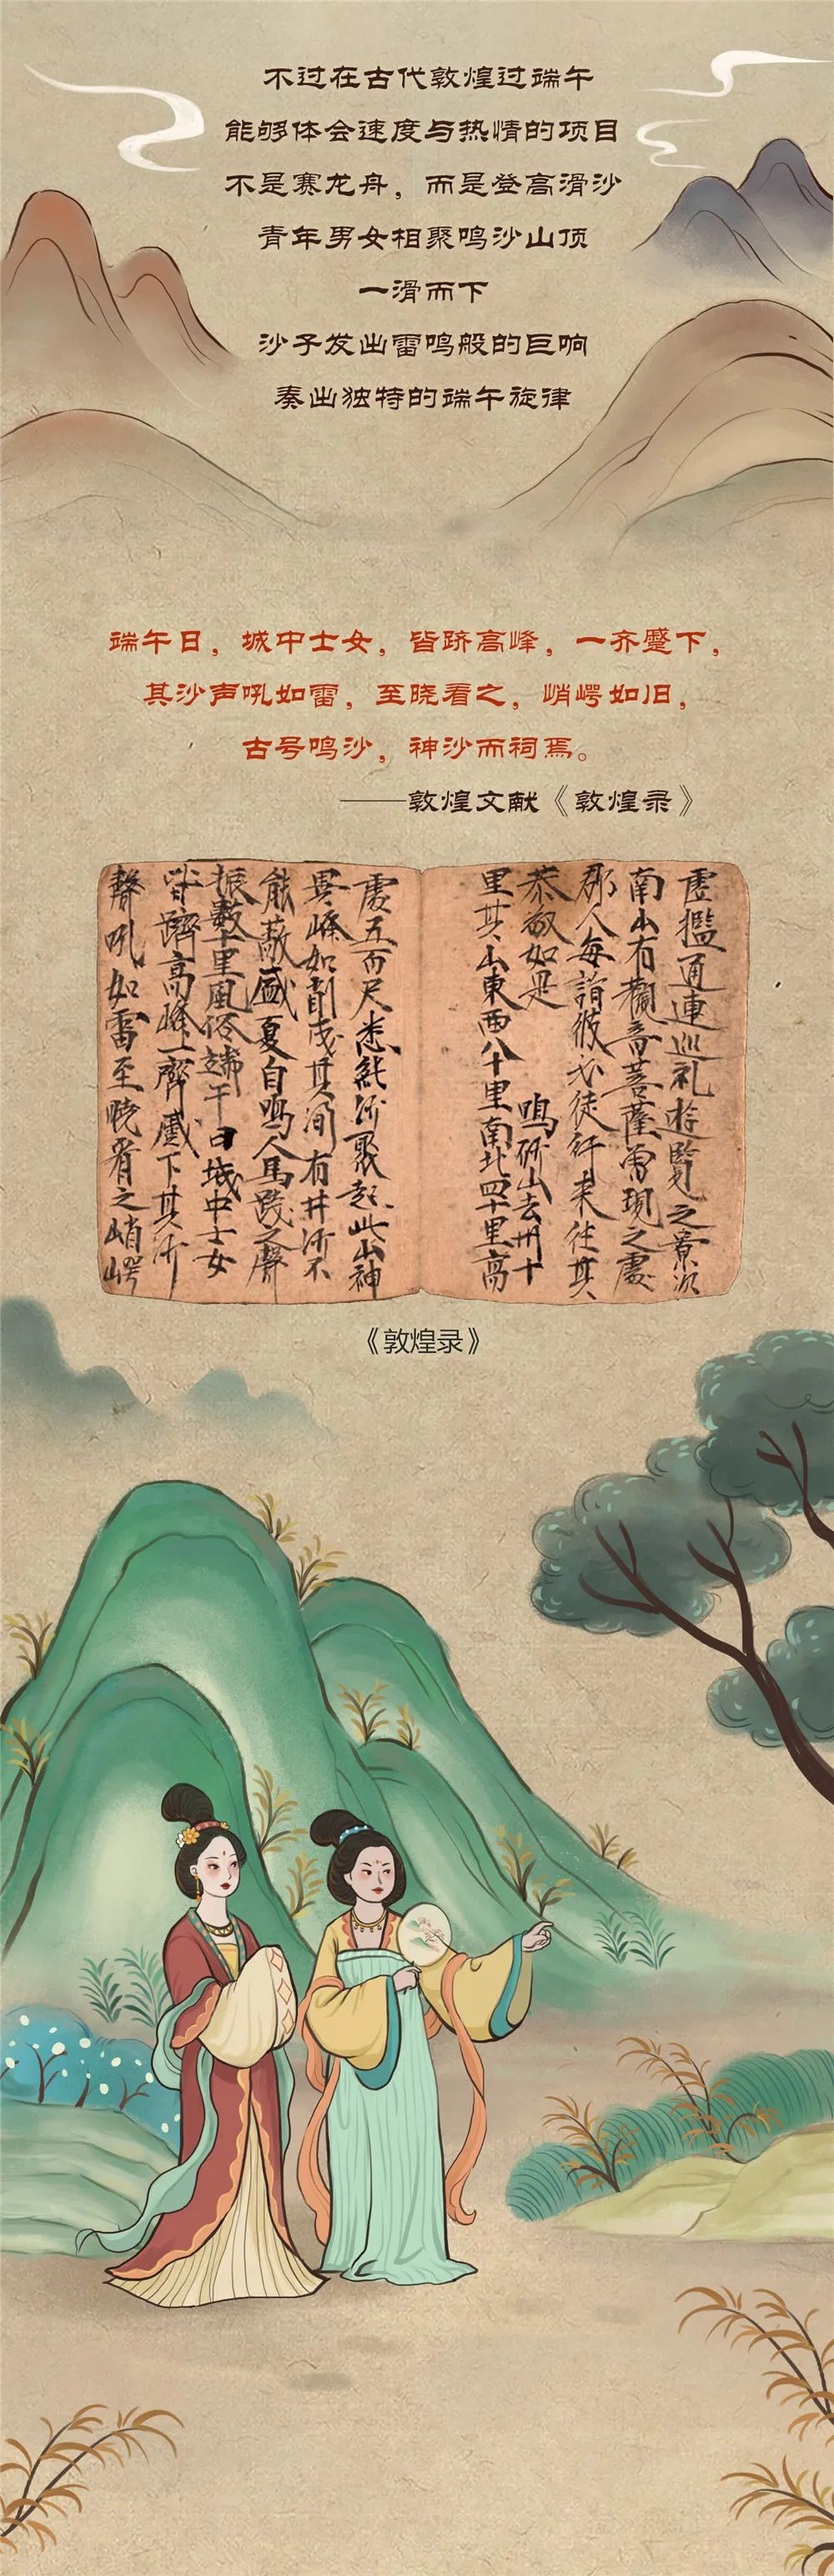 不过在古代敦煌过端午
能够体会速度与热情的项目
不是赛龙舟，而是登高滑沙
青年男女相聚鸣沙山顶
一滑而下
沙子发出雷鸣般的巨响
奏出独特的端午旋律
端午日，城中士女，皆跻高峰，一齐蹙下，
其沙声吼如雷，至晓看之，峭崿如旧，
古号鸣沙，神沙而祠焉。
——敦煌文献《敦煌录》
虚檻通連巡礼遊覽之景次
南山有觀音菩薩曾現之處
郡人每詣彼必徒行来往其
恭敬如是 鳴沙山去州十
里其山東西八十里南北四十里高
處五百尺悉純沙聚起此山神
異峰如削成其间有井沙不
能蔽盛夏自鳴人馬踐之聲
振數十里風俗端午日城中士女
皆躋高峰一齊蹙下其沙
聲吼如雷至曉看之峭崿
《敦煌录》